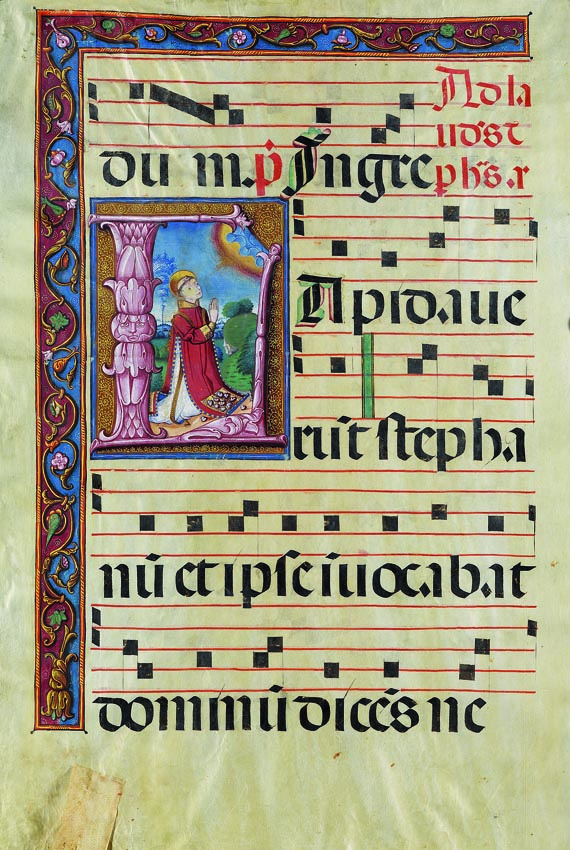 Ad la
ud's st
du m. p̄ Ingre ph's. r
LApidaue
rūt stepha
nū et ipse īuocabat
dominū dicēs ne